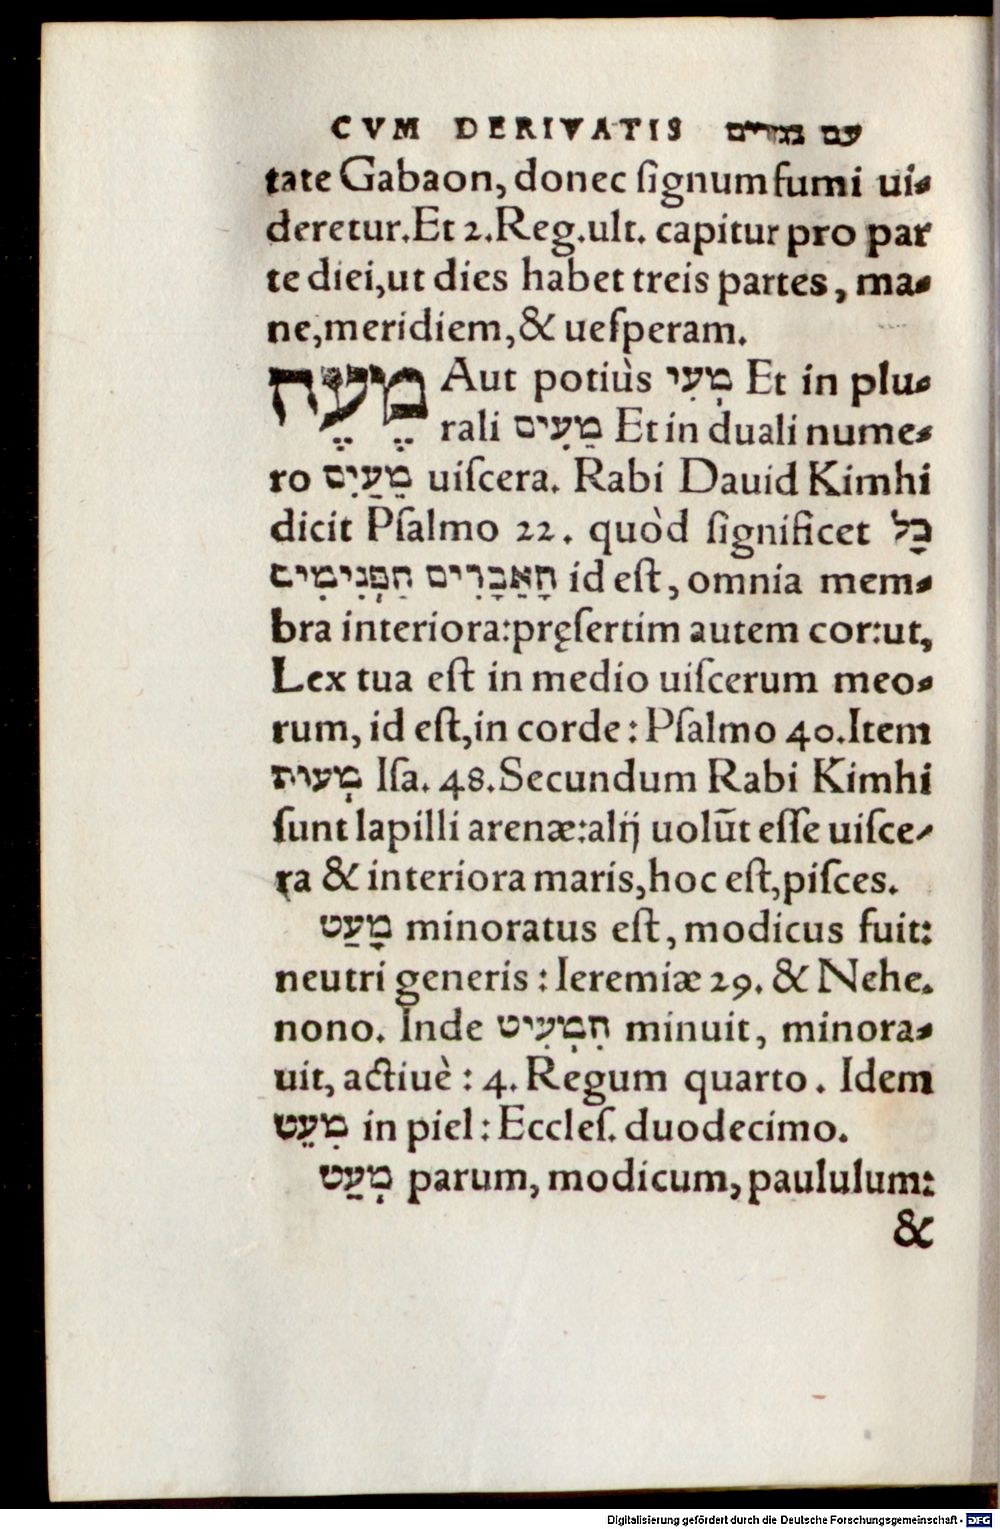 CVM DERIVATIS עם נגזרים
tate Gabaon, donec ſignum fumi ui-
deretur. Et 2. Reg. ult. capitur pro par
te diei, ut dies habet treis partes, ma-
ne, meridiem, & ueſperam.
מֶעֶה Aut potiùs מְעִי Et in plu-
rali מֵעִים Et in duali nume-
ro מֵעַיִם uiſcera. Rabi Dauid Kimhi
dicit Pſalmo 22. quòd ſignificet כָּל
הָאֵבָרִים הַפְּנִימִים id eſt, omnia mem-
bra interiora: pręſertim autem cor: ut,
Lex tua eſt in medio uiſcerum meo-
rum, id eſt, in corde: Pſalmo 40. Item
מְעוֹת Iſa. 48. Secundum Rabi Kimhi
ſunt lapilli arenæ: alij uolūt eſſe uiſce-
ra & interiora maris, hoc eſt, piſces.
מָעַט minoratus eſt, modicus fuit:
neutri generis: Ieremiæ 29. & Nehe.
nono. Inde הִמְעִיט minuit, minora-
uit, actiuè: 4. Regum quarto. Idem
מִעֵט in piel: Eccleſ. duodecimo.
מְעַט parum, modicum, paululum:
&
Digitalisierung gefördert durch die Deutsche Forschungsgemeinschaft - DFG